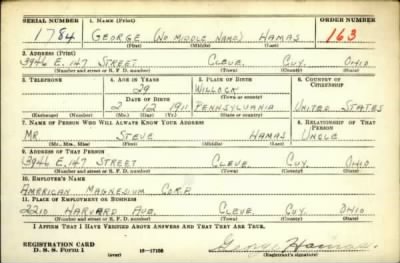 SERIAL NUMBER 1. NAME (Print) ORDER NUMBER
1784 GEORGE (NO MIDDLE NAME) HAMAS 163
(First) (Middle) (Last)
2. ADDRESS (Print)
3946 E. 147 STREET CLEVE. CUY. OHIO
(Number and street or R. F. D. number) (Town) (County) (State)
3. TELEPHONE 4. AGE IN YEARS 5. PLACE OF BIRTH 6. COUNTRY OF CITIZENSHIP
29 WILLOCK
DATE OF BIRTH (Town or county)
2 12 1911 PENNSYLVANIA UNITED STATES
(Exchange) (Number) (Mo.) (Day) (Yr.) (State or country)
7. NAME OF PERSON WHO WILL ALWAYS KNOW YOUR ADDRESS 8. RELATIONSHIP OF THAT PERSON
MR. STEVE HAMAS UNCLE
(Mr., Mrs., Miss) (First) (Middle) (Last)
9. ADDRESS OF THAT PERSON
3946 E. 147 STREET CLEVE. CUY. OHIO
(Number and street or R. F. D. number) (Town) (County) (State)
10. EMPLOYER'S NAME
AMERICAN MAGNESIUM CORP.
11. PLACE OF EMPLOYMENT OR BUSINESS
2210 HARVARD AVE. CLEVE. CUY. OHIO
(Number and street or R. F. D. number) (Town) (County) (State)
I AFFIRM THAT I HAVE VERIFIED ABOVE ANSWERS AND THAT THEY ARE TRUE.
REGISTRATION CARD
D. S. S. Form 1 (over) 16-17105 George Hamas
(Registrant's signature)